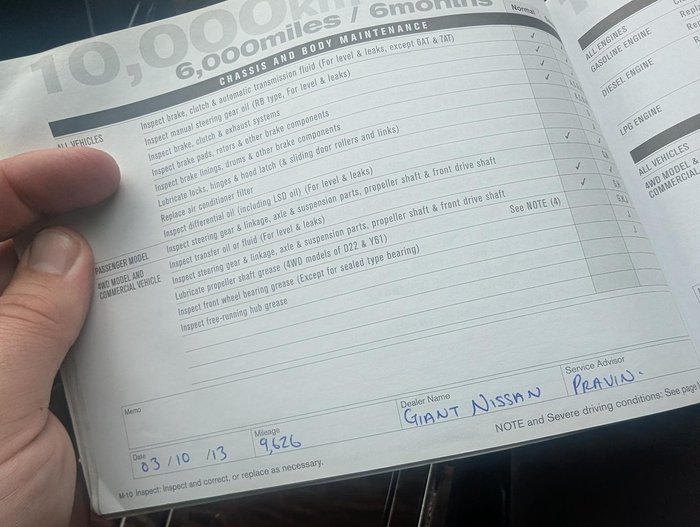 10,000km
6,000miles / 6months
CHASSIS AND BODY MAINTENANCE
Normal
ALL VEHICLES
Inspect brake, clutch & automatic transmission fluid (For level & leaks, except 6AT & 7AT) ✓
Inspect manual steering gear oil (RB type, For level & leaks) ✓
Inspect brake, clutch & exhaust systems ✓
Inspect brake pads, rotors & other brake components
Inspect brake linings, drums & other brake components
Lubricate locks, hinges & hood latch (& sliding door rollers and links)
Replace air conditioner filter
Inspect differential oil (including LSD oil) (For level & leaks)
PASSENGER MODEL
Inspect steering gear & linkage, axle & suspension parts, propeller shaft & front drive shaft
4WD MODEL AND
COMMERCIAL VEHICLE
Inspect transfer oil or fluid (For level & leaks)
Inspect steering gear & linkage, axle & suspension parts, propeller shaft & front drive shaft
Lubricate propeller shaft grease (4WD models of D22 & Y61) See NOTE (4)
Inspect front wheel bearing grease (Except for sealed type bearing)
Inspect free-running hub grease
Memo
Date
03/10/13
Mileage
9,626
Dealer Name
GIANT NISSAN
Service Advisor
PRAVIN.
M-10 Inspect: Inspect and correct, or replace as necessary.
NOTE and Severe driving conditions: See page
ALL ENGINES
GASOLINE ENGINE
DIESEL ENGINE
LPG ENGINE
ALL VEHICLES
4WD MODEL &
COMMERCIAL